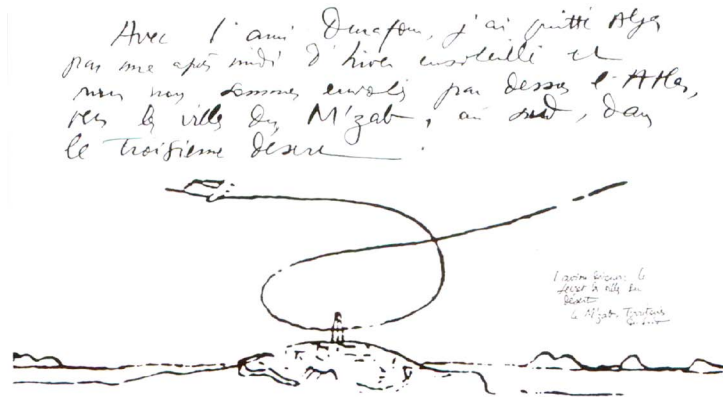 Avec l'ami Durafour, j'ai quitté Alger
par une après midi d'hiver ensoleillé et
nous nous sommes envolés par dessus l'Atlas,
vers les villes du M'zab, au sud, dans
le troisième désert.
l'avion
la ville du
désert
le M'zab